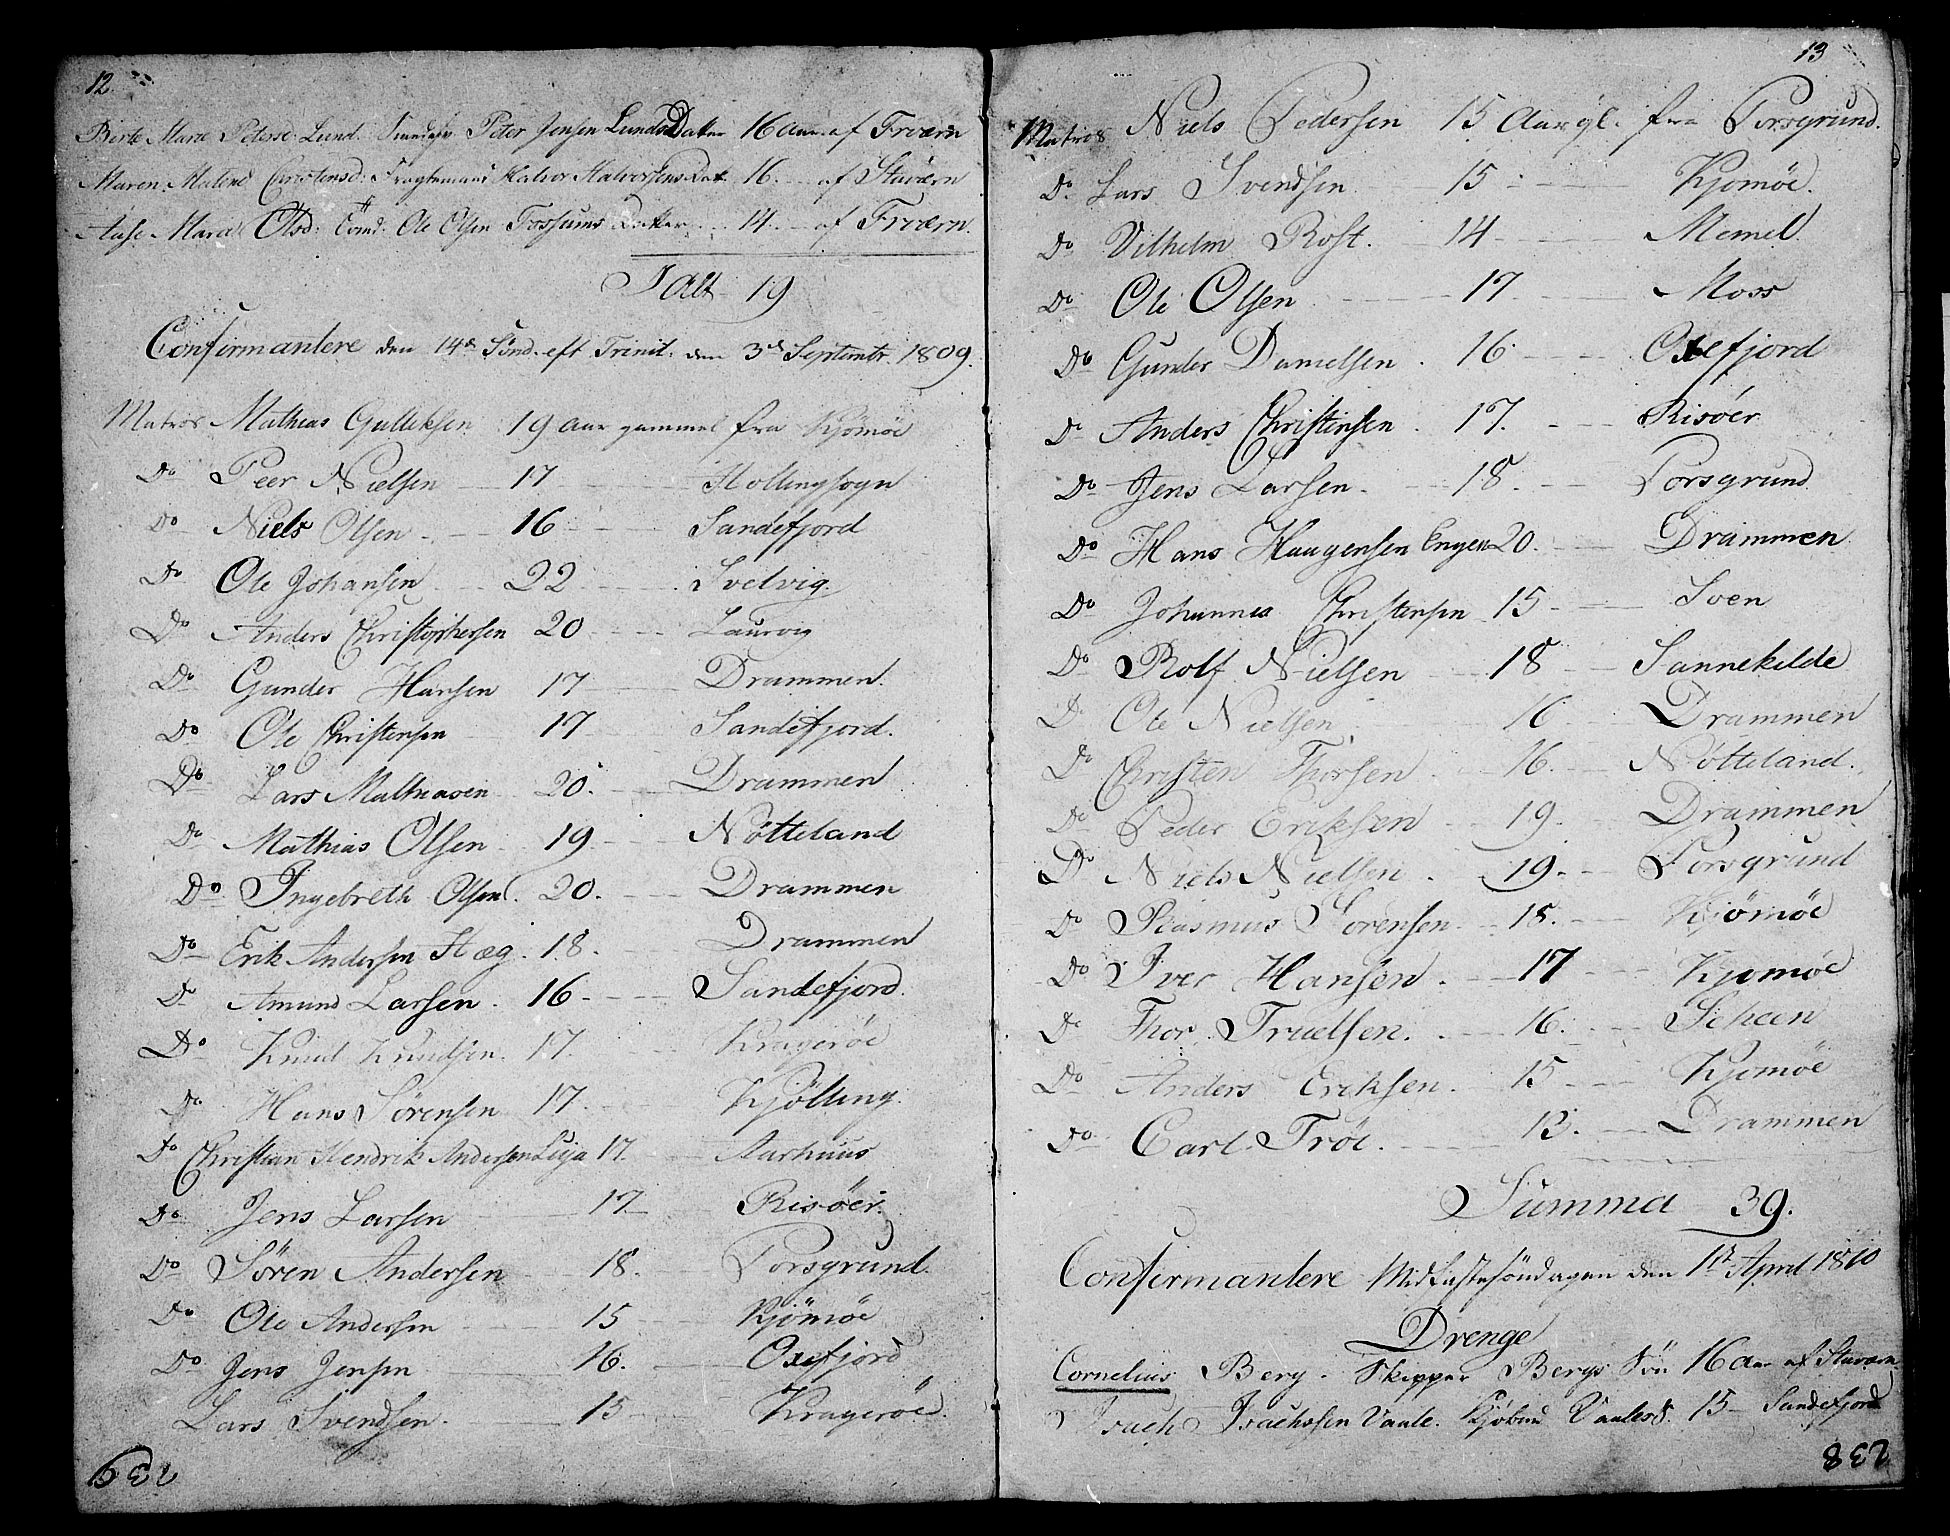 12.
Birte Marie Peterse: Lund. Peter Jensen Lunds Datter 16 Aar af Frværn
Maren Malene Christensd: Fragtemand Halvor Halvorsens Dat. 16 af Staværn
Aase Maria Olsd: Ole Olsen Fossums Datter 14 af Frværn.
I Alt 19
Confirmantere den 14de Sönd. eft Trinit. den 3de Septembr. 1809.
Matros Mathias Gulliksen 19 Aar gammel fra Kjömöe
Do Peer Nielsen 17 Hollingsogn
Do Niels Olsen 16 Sandefjord
Do Ole Johansen 22 Svelvig.
Do Anders Christophersen 20 Laurvig
Do Gunder Hansen 17 Drammen.
Do Ole Christensen 17 Sandefjord.
Do Lars Mathiasen 20. Drammen
Do Mathias Olsen 19. Nötteland
Do Ingebreth Olsen. 20. Drammen
Do Erik Andersen Hæg. 18. Drammen
Do Amund Larsen. 16 Sandefjord.
Do Knud Knudsen. 17. Kragerøe
Do Hans Sörensen 17. Kjölling.
Do Christian Hendrik Andersen Luja 17. Aarhuus
Do Jens Larsen 17 Risöer.
Do Sören Andersen 18. Porsgrund.
Do Ole Andersen 15 Kjömöe
Do Jens Jensen 16. Oxefjord
Lars Svendsen. 15 Kragerøe.
239
13
Matros Niels Pedersen 15 Aar gl. fra Porsgrund.
Do Lars Svendsen 15 Kjomøe.
Do Vilhelm Rost. 14 Memel.
Do Ole Olsen 17 Moss
Do Gunder Danielsen. 16 Oxefjord
Do Anders Christensen. 17. Risöer
Do Jens Larsen. 18. Porsgrund
Do Hans Haagensen Engen 20. Drammen
Do Johannes Christensen 15 Sven
Do Rolf Nielsen 18 Sannekilde
Do Ole Nielsen 16 Drammen
Do Christen Thorsen. 16. Nötteland.
Do Peder Eriksen 19. Drammen
Do Niels Nielsen. 19. Porsgrund
Do Rasmus Sorensen. 18. Kjömöe
Do Iver Hansen. 17 Kjomöe
Do Thor Truelsen. 16. Scheen
Do Anders Eriksen. 15 Kjomöe
Do Carl Tröe. 13. Drammen
Summa 39.
Confirmantere Midfastesöndagen den 1ste April 1810
Drenge
Cornelius Berg. Skipper Bergs Sön 16 Aar af Staværn
Isach Isachssen Vaale. Kjöbmd Vaales S. 15 Sandefjord
238